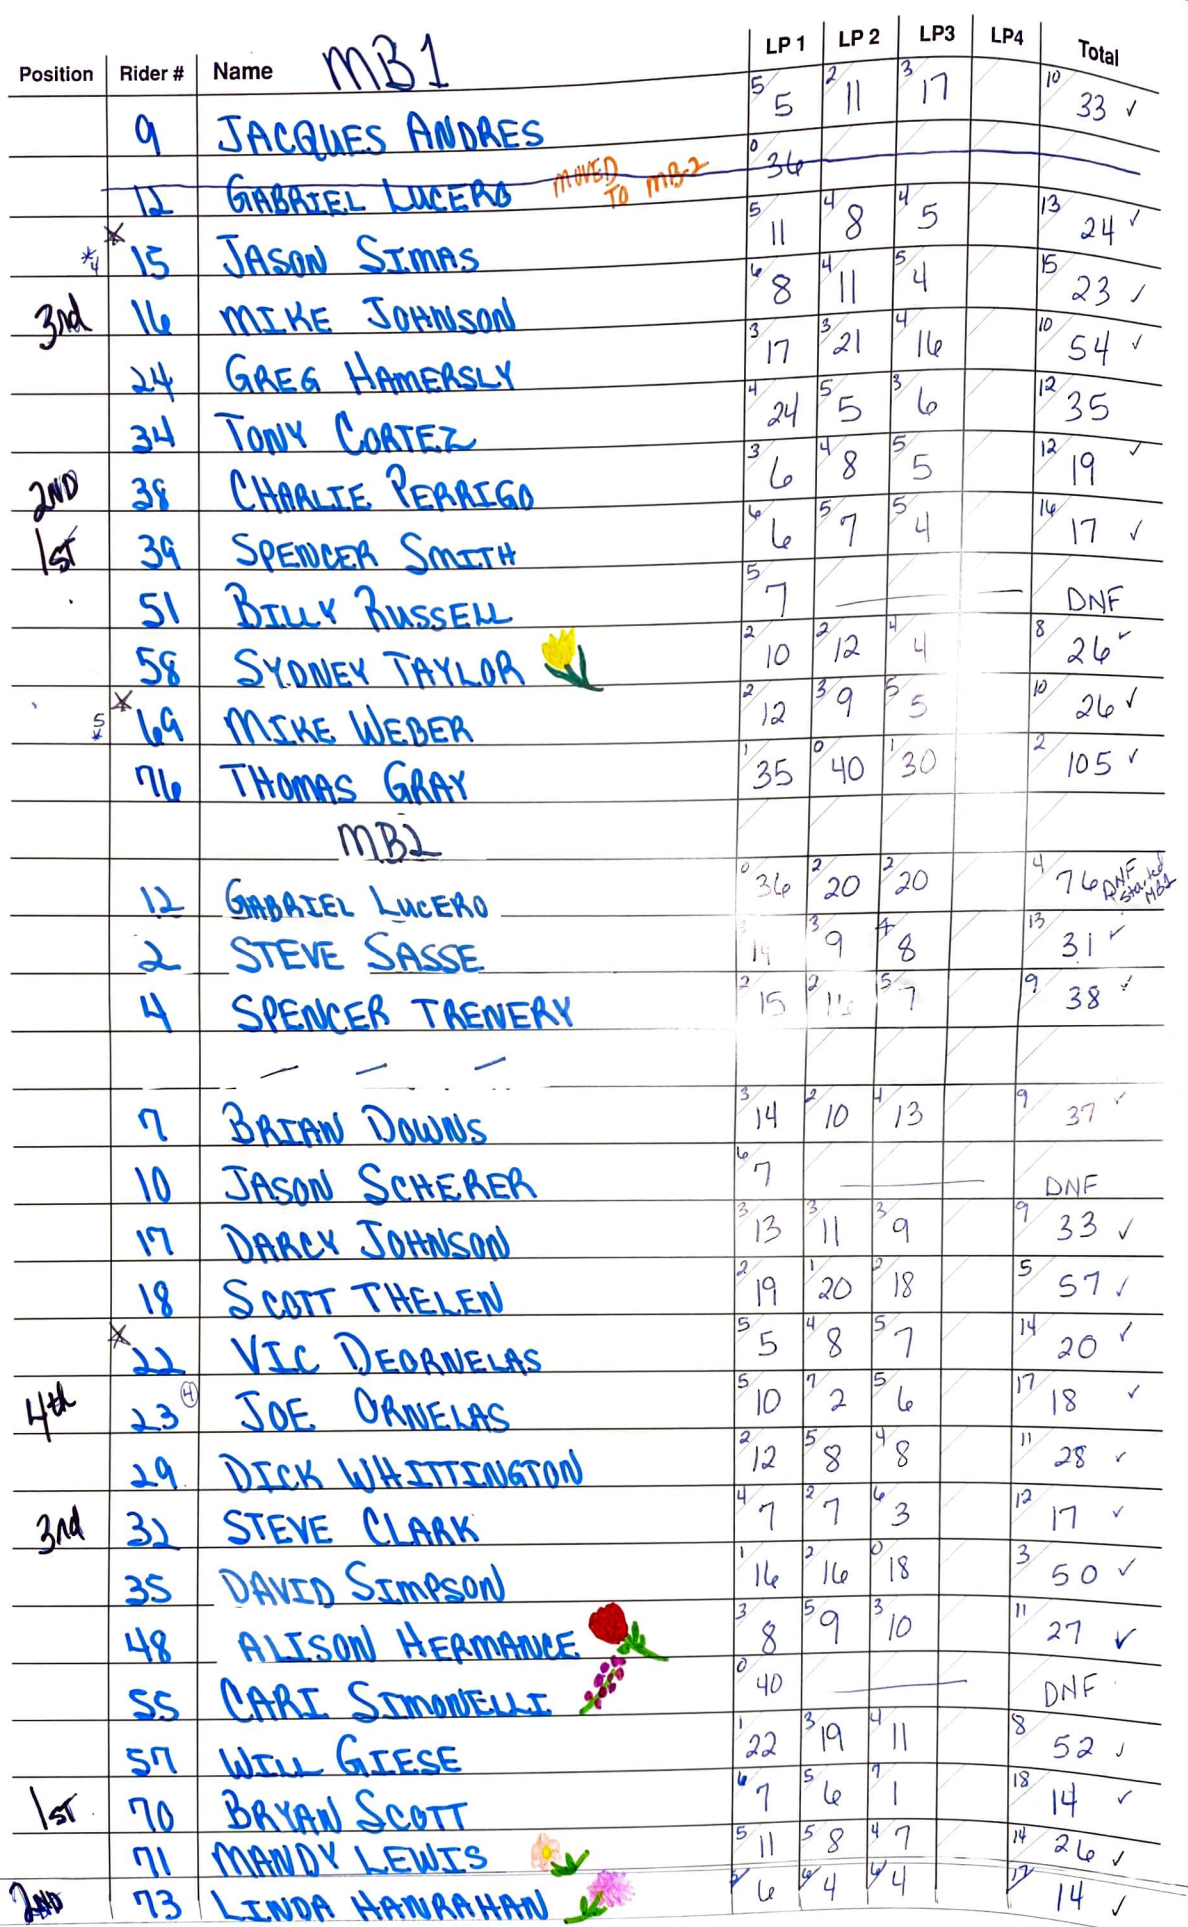 Position Rider # Name MB1 LP 1 LP 2 LP3 LP4 Total
9 JACQUES ANDRES 5 5 2 11 3 17 10 33 ✓
12 GABRIEL LUCERO MOVED TO MB-2 0 36
*4 * 15 JASON SIMAS 5 11 4 8 4 5 13 24 ✓
3rd 16 MIKE JOHNSON 6 8 4 11 5 4 15 23 ✓
24 GREG HAMERSLY 3 17 3 21 4 16 10 54 ✓
34 TONY CORTEZ 4 24 5 5 3 6 12 35
2ND 38 CHARLIE PERRIGO 3 6 4 8 5 5 12 19 ✓
1ST 39 SPENCER SMITH 6 6 5 7 5 4 16 17 ✓
51 BILLY RUSSELL 5 7 — DNF
58 SYDNEY TAYLOR 2 10 2 12 4 4 8 26 ✓
5* * 69 MIKE WEBER 2 12 3 9 5 5 10 26 ✓
76 THOMAS GRAY 1 35 0 40 1 30 2 105 ✓
MB2
12 GABRIEL LUCERO 0 36 2 20 2 20 4 76 DNF Started MB1
2 STEVE SASSE 14 3 9 4 8 13 31 ✓
4 SPENCER TRENERY 2 15 2 5 7 9 38 ✓
— — —
7 BRIAN DOWNS 3 14 2 10 4 13 9 37 ✓
10 JASON SCHERER 6 7 — DNF
17 DARCY JOHNSON 3 13 3 11 3 9 9 33 ✓
18 SCOTT THELEN 2 19 1 20 2 18 5 57 ✓
* 22 VIC DEORNELAS 5 5 4 8 5 7 14 20 ✓
4th 23 4 JOE ORNELAS 5 10 7 2 5 6 17 18 ✓
29 DICK WHITTINGTON 2 12 5 8 4 8 11 28 ✓
3rd 32 STEVE CLARK 4 7 2 7 6 3 12 17 ✓
35 DAVID SIMPSON 1 16 2 16 0 18 3 50 ✓
48 ALISON HERMANCE 3 8 5 9 3 10 11 27 ✓
55 CARI SIMONELLI 0 40 — DNF
57 WILL GIESE 1 22 3 19 4 11 8 52 ✓
1ST 70 BRYAN SCOTT 6 7 5 6 7 1 18 14 ✓
71 MANDY LEWIS 5 11 5 8 4 7 14 26 ✓
2ND 73 LINDA HANRAHAN 6 6 4 6 4 17 14 ✓